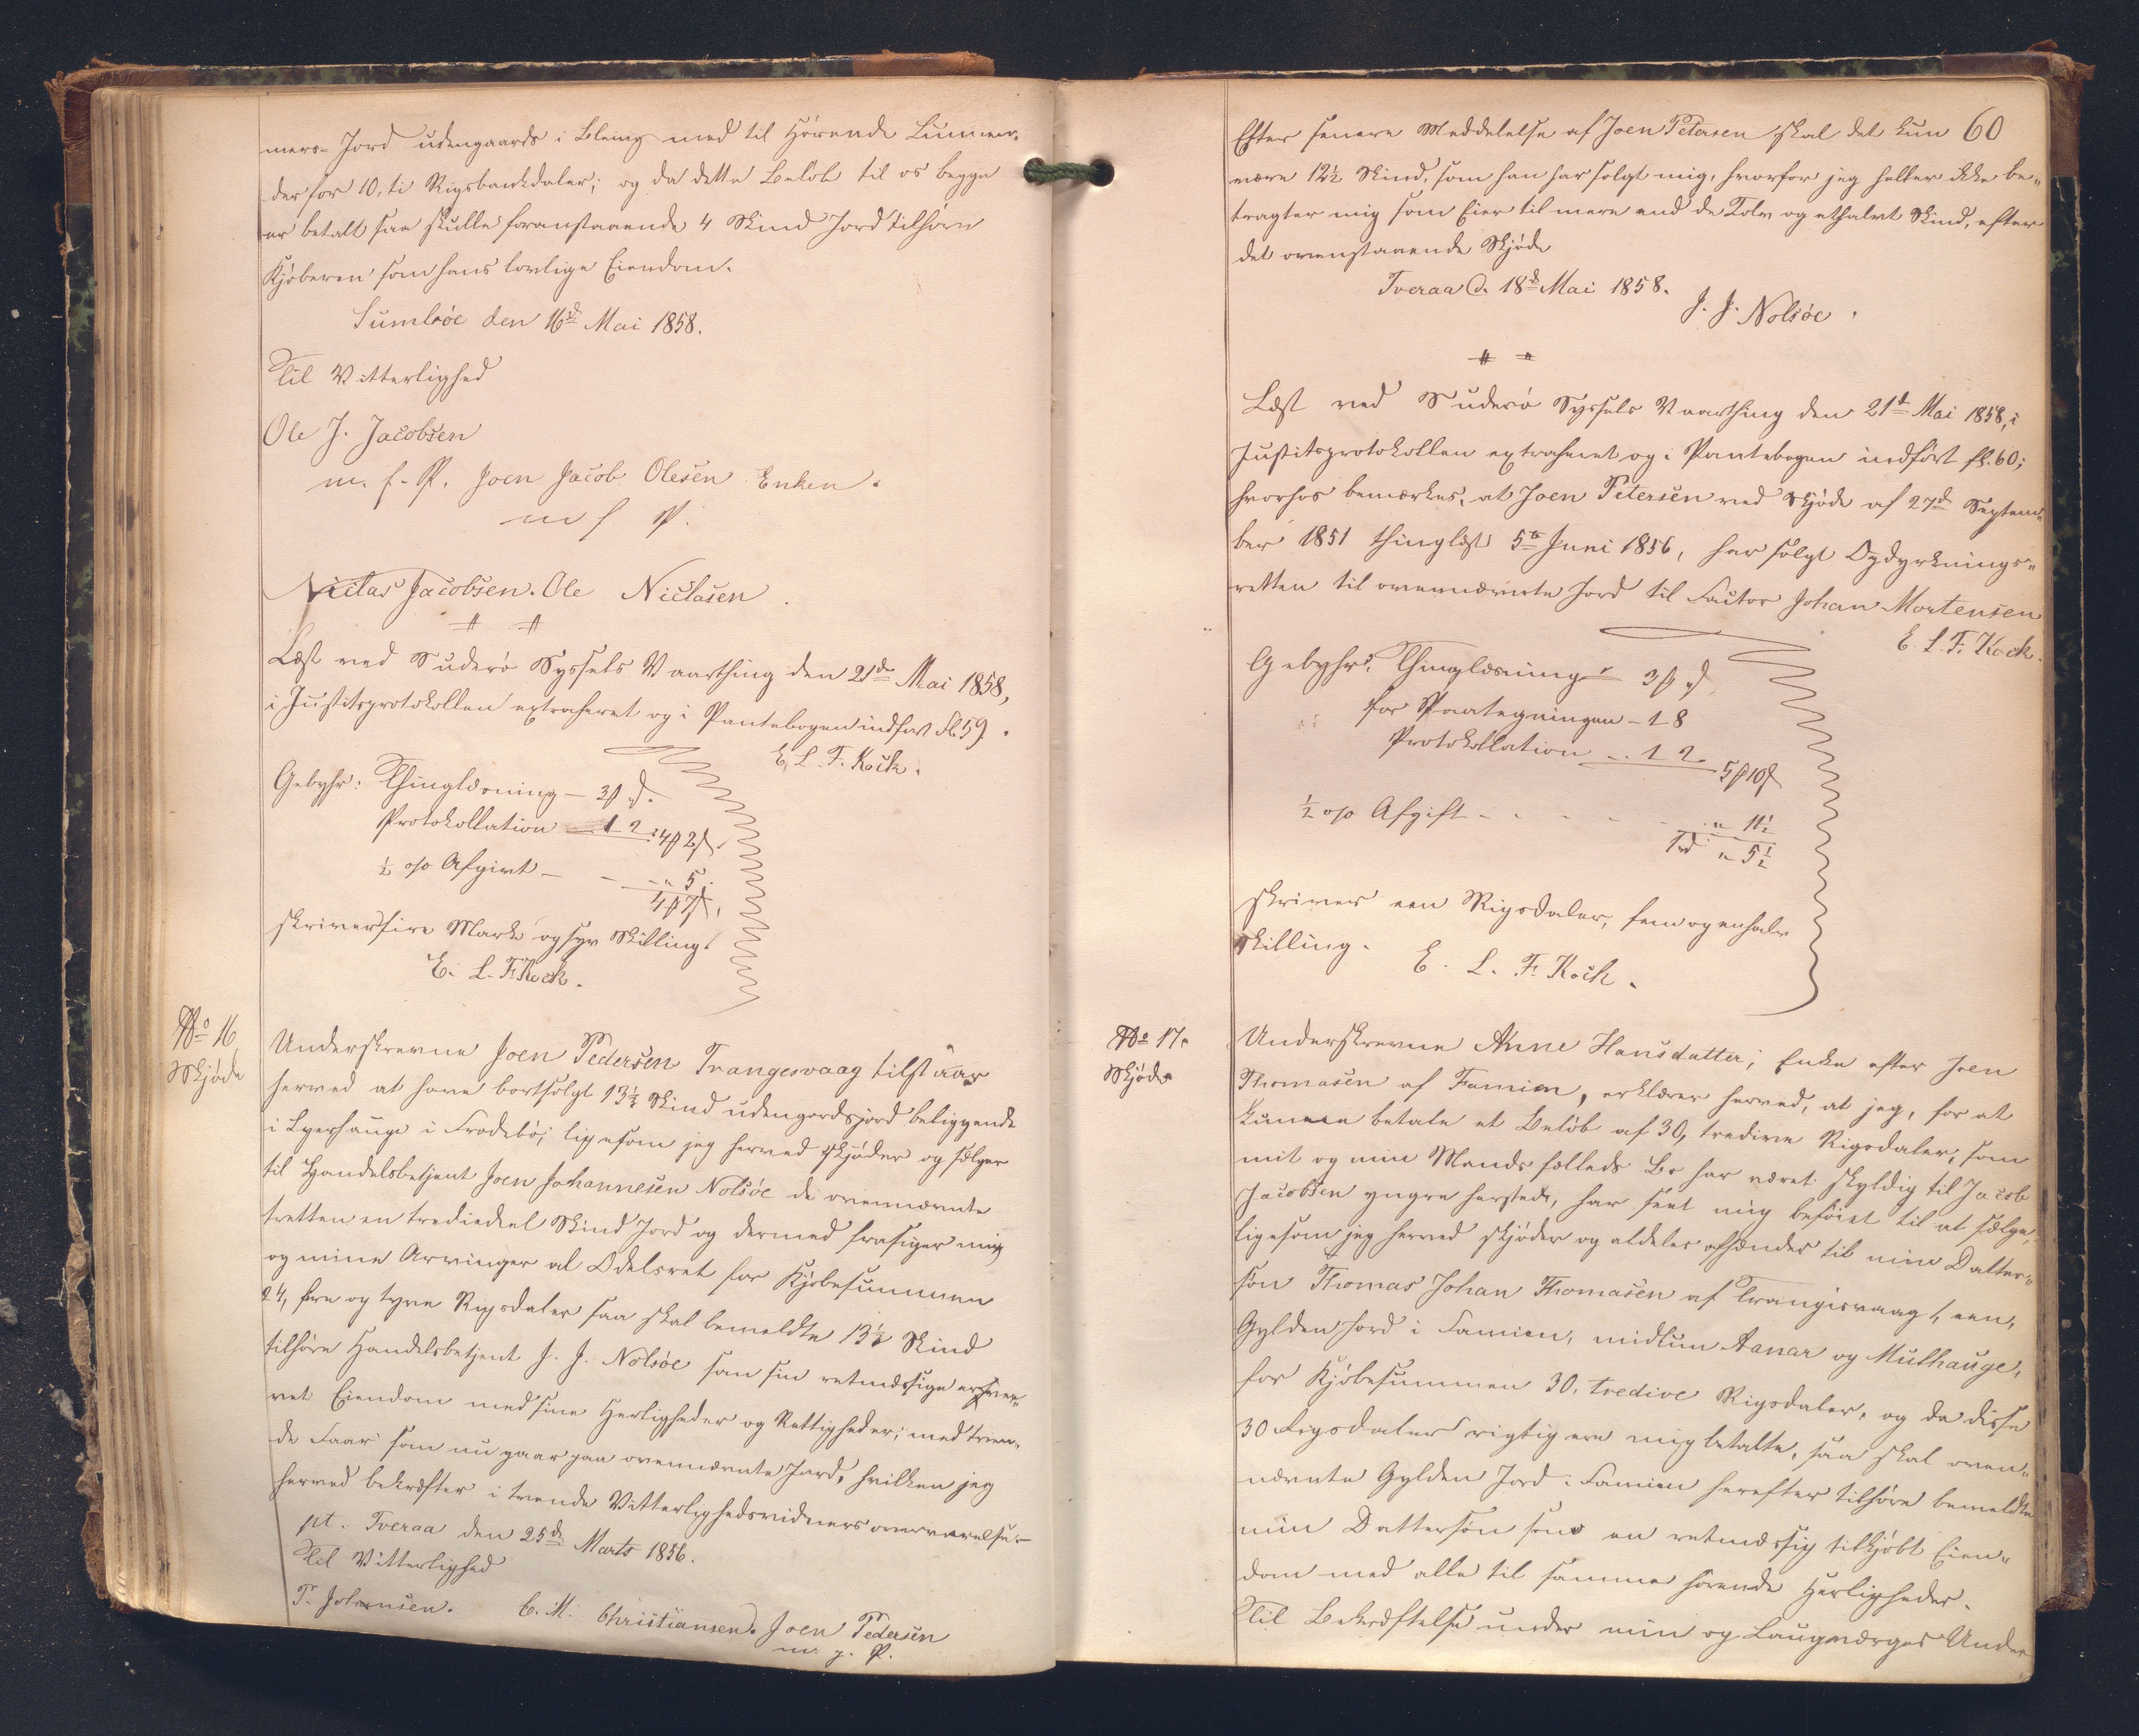 mers-Jord udengaards i Beling med til hørende Lunnen-
der for 10, ti Rigsbankdaler; og da dette Beløb til os begge
er betalt saa skulle foranstaaende 4 Skind Jord tilhøre
Kjøberen som hans lovlige Eiendom.
Sumbøe den 16de Mai 1858.
Til Vitterlighed
Ole J. Jacobsen
m. f. P. Joen Jacob Olesen Enken.
m f P.
Niclas Jacobsen. Ole Niclasen.
Læst ved Suderø Syssels Vaarthing den 21de Mai 1858,
i Justitsprotokollen extraheret og i Pantebogen indført fl. 59.
E. L. F. Koch.
Gebyhr: Thinglæsning – 3 β „ſ.
Protokollation – 1 2. 4 β 2 ſ.
½ o/o Afgivt – – – „ 5.
4 β 7 ſ.
skriver fire Mark og syv Skilling.
E. L. F. Koch.
No 16
Skjøde
Underskrevne Joen Pedersen Trangesvaag tilstaar
herved at have bortsolgt 13⅓ Skind udengordsjord beliggende
i Lyerhauge i Frodebø; ligesom jeg herved skjøder og sælger
til Handelsbetjent Joen Johannesen Nolsöe de ovennævnte
tretten en trediedeel Skind Jord og dermed frasiger mig
og mine Arvinger al Odelsret for Kjøbesummen
24, fire og tyve Rigsdaler saa skal bemeldte 13⅓ Skind
tilhøre Handelsbetjent J. J. Nolsöe som sin retmæssige erhver-
vet Eiendom med sine Herligheder og Rettigheder, med tven-
de Faar som nu gaar paa ovennævnte Jord, hvilken jeg
herved bekræfter i tvende Vitterlighedsvidners overværelse.
pt. Tveraa den 25de Marts 1856.
Til Vitterlighed
P. Johansen. C. M. Christiansen. Joen Pedersen
m. p. P.
60
Efter senere Meddelelse af Joen Petersen skal det kun
være 12½ Skind, som han har solgt mig, hvorfor jeg heller ikke be-
tragter mig som Eier til mere end de Tolv og ethalvt Skind, efter
det ovenstaaende Skjøde
Tveraa d. 18de Mai 1858.
J. J. Nolsöe.
Læst ved Suderø Syssels Vaarthing den 21de Mai 1858, i
Justitsprotokollen extraheret og i Pantebogen indført fl. 60;
hvorhos bemærkes, at Joen Petersen ved Skjøde af 27de Septem-
ber 1851 thinglæst 5te Juni 1856, har solgt Opdyrknings-
retten til ovennævnte Jord til Factor Johan Mortensen
E. L. F. Koch.
Gebyhr: Thinglæsning – 3 β „ſ
for Paategningen – 1 8
Protokollation – 1 2. 5 β 10 ſ
½ o/o Afgift – – – – „ 11½
1 rd „ 5½
skriver een Rigsdaler, fem og enhalv
skilling.
E. L. F. Koch.
No 17.
Skjøde
Underskrevne Anne Hansdatter, Enke efter Joen
Thomasen af Famien, erklærer herved, at jeg, for at
kunne betale et Beløb af 30, tredive Rigsdaler, som
mit og min Mands fælleds Bo har været skyldig til Jacob
Jacobsen yngre hersteds, har seet mig beføiet til at sælge,
ligesom jeg herved skjøder og aldeles afhænder til min Datter-
søn Thomas Johan Thomasen af Trangisvaag 1, een,
Gylden Jord i Famien, midlum Aanar og Mulhauge,
for Kjøbesummen 30, tredive Rigsdaler, og da disse
30 Rigsdaler rigtig ere mig betalte, saa skal oven-
nævnte Gylden Jord i Famien herefter tilhøre bemeldte
min Dattersøn som en retmæssig tilkjøbt Eien-
dom med alle til samme hørende Herligheder.
Til Bekræftelse under min og Laugværges Under